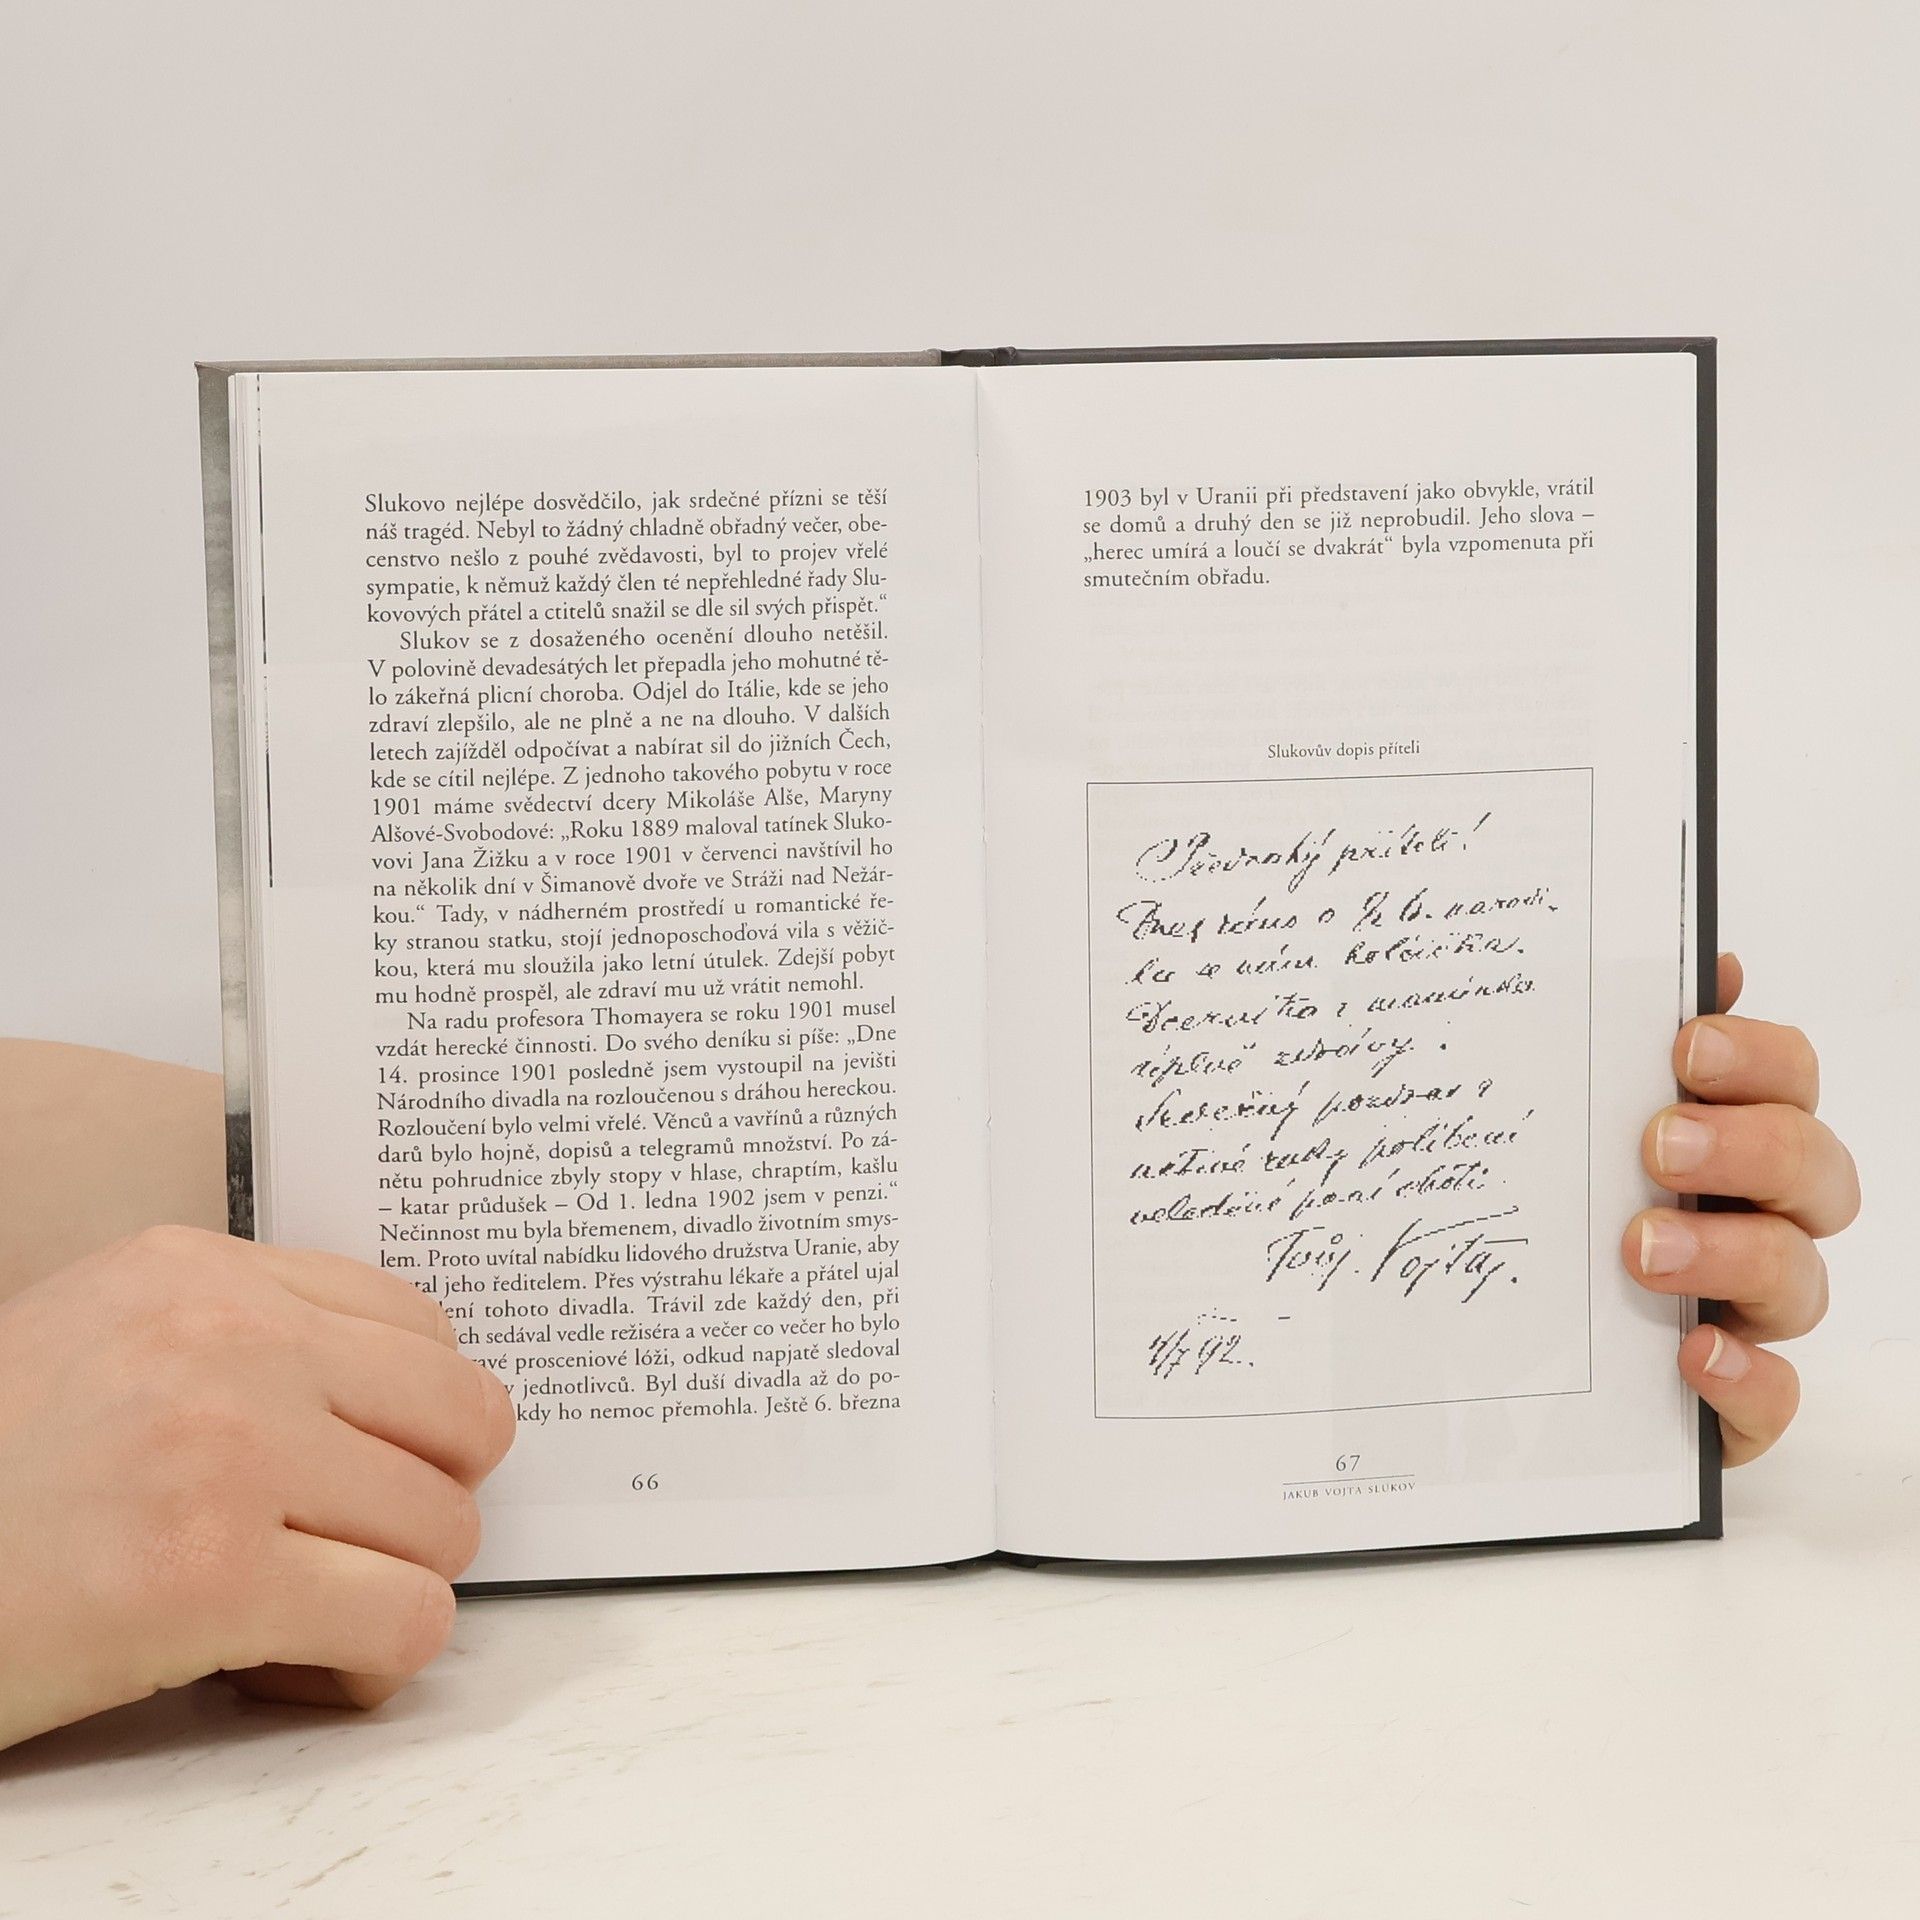 Slukovo nejlépe dosvědčilo, jak srdečné přízni se těší
náš tragéd. Nebyl to žádný chladně obřadný večer, obe-
censtvo nešlo z pouhé zvědavosti, byl to projev vřelé
sympatie, k němuž každý člen té nepřehledné řady Slu-
kovových přátel a ctitelů snažil se dle sil svých přispět.“
Slukov se z dosaženého ocenění dlouho netěšil.
V polovině devadesátých let přepadla jeho mohutné tě-
lo zákeřná plicní choroba. Odjel do Itálie, kde se jeho
zdraví zlepšilo, ale ne plně a ne na dlouho. V dalších
letech zajížděl odpočívat a nabírat sil do jižních Čech,
kde se cítil nejlépe. Z jednoho takového pobytu v roce
1901 máme svědectví dcery Mikoláše Alše, Maryny
Alšové-Svobodové: „Roku 1889 maloval tatínek Sluko-
vovi Jana Žižku a v roce 1901 v červenci navštívil ho
na několik dní v Šimanově dvoře ve Stráži nad Nežár-
kou.“ Tady, v nádherném prostředí u romantické ře-
ky stranou statku, stojí jednoposchoďová vila s věžič-
kou, která mu sloužila jako letní útulek. Zdejší pobyt
mu hodně prospěl, ale zdraví mu už vrátit nemohl.
Na radu profesora Thomayera se roku 1901 musel
vzdát herecké činnosti. Do svého deníku si píše: „Dne
14. prosince 1901 posledně jsem vystoupil na jevišti
Národního divadla na rozloučenou s dráhou hereckou.
Rozloučení bylo velmi vřelé. Věnců a vavřínů a různých
darů bylo hojně, dopisů a telegramů množství. Po zá-
nětu pohrudnice zbyly stopy v hlase, chraptím, kašlu
– katar průdušek – Od 1. ledna 1902 jsem v penzi.“
Nečinnost mu byla břemenem, divadlo životním smys-
lem. Proto uvítal nabídku lidového družstva Uranie, aby
jeho ředitelem. Přes výstrahu lékaře a přátel ujal
tohoto divadla. Trávil zde každý den, při
sedával vedle režiséra a večer co večer ho bylo
prosceniové lóži, odkud napjatě sledoval
jednotlivců. Byl duší divadla až do po-
kdy ho nemoc přemohla. Ještě 6. března
66
1903 byl v Uranii při představení jako obvykle, vrátil
se domů a druhý den se již neprobudil. Jeho slova –
„herec umírá a loučí se dvakrát“ byla vzpomenuta při
smutečním obřadu.
Slukovův dopis příteli
příteli!
Dnes ráno o 1/2 6. narodi-
la se nám holčička.
Dceruška i maminka
úplně zdrávy.
Srdečný pozdrav i
uctivé ruky políbení
velectěné paní choti.
Tvůj Vojta
/7 92.
67
JAKUB VOJTA SLUKOV